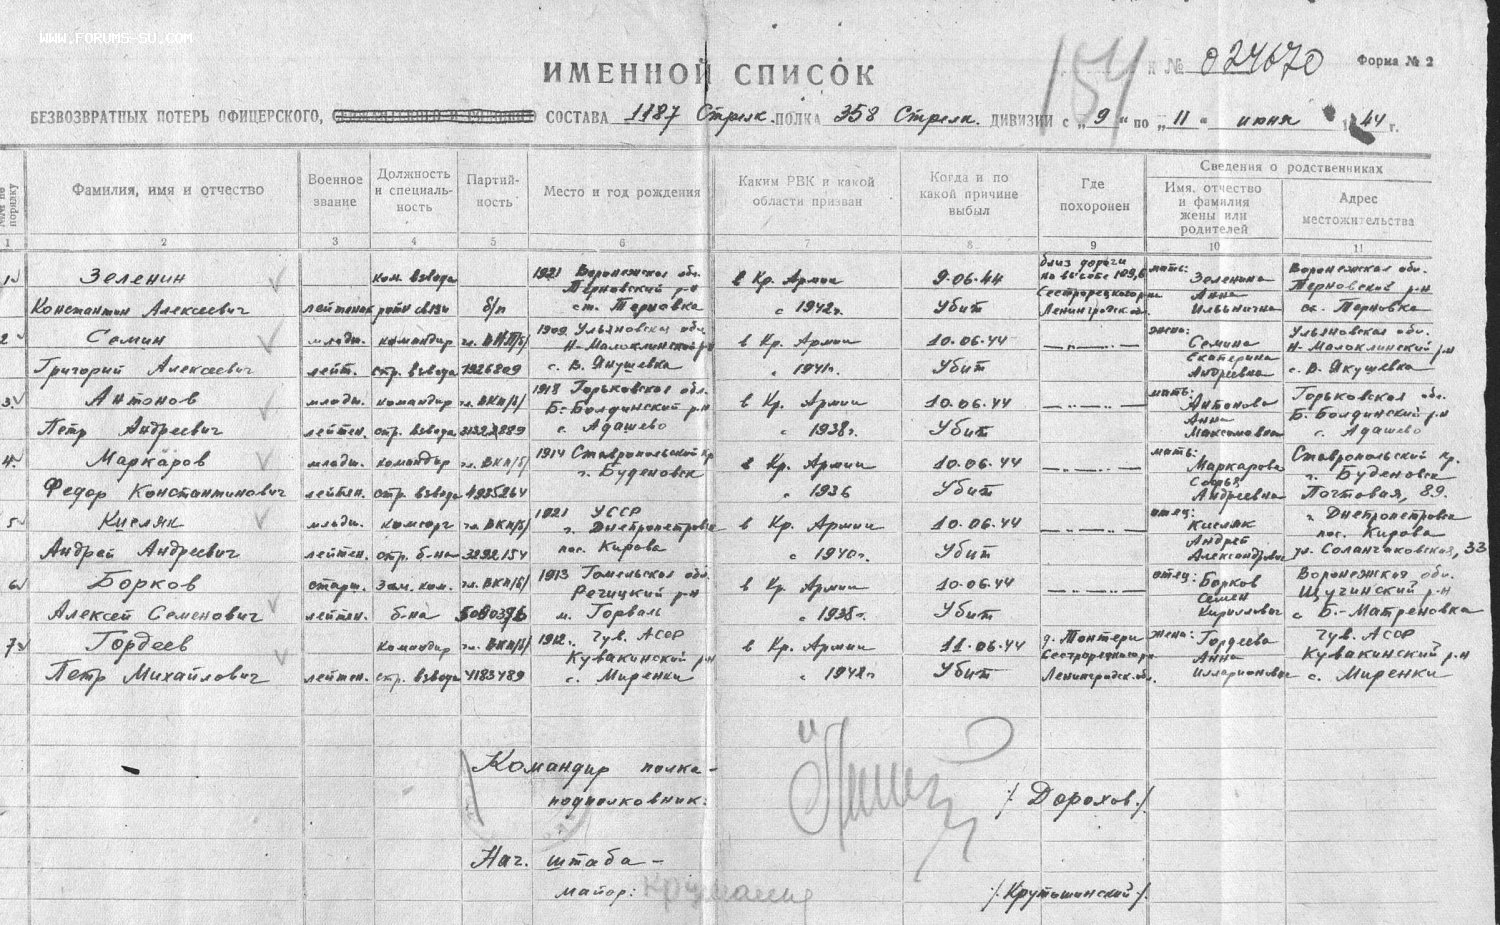 WWW.FORUMS-SU.COM
154
н № 024670 Форма № 2
ИМЕННОЙ СПИСОК
БЕЗВОЗВРАТНЫХ ПОТЕРЬ ОФИЦЕРСКОГО, СОСТАВА 1187 Стрелк. ПОЛКА 358 Стрелк. ДИВИЗИИ с „ 9 “ по „ 11 “ июня 1944 г.
№№ по порядку
Фамилия, имя и отчество
Военное звание
Должность и специаль-ность
Партий-ность
Место и год рождения
Каким РВК и какой области призван
Когда и по какой причине выбыл
Где похоронен
Сведения о родственниках
Имя, отчество и фамилия жены или родителей
Адрес местожительства
1 2 3 4 5 6 7 8 9 10 11
1 Зеленин Константин Алексеевич
лейтенант
ком. взвода роты связи
б/п
1921 Воронежская обл. Терновский р-н ст. Терновка
в Кр. Армии с 1942г.
9.06.44 Убит
близ дороги на высоте 109,6 Сестрорецкого рна Ленинградск. обл.
мать: Зеленина Анна Ильинична
Воронежская обл. Терновский р-н ст. Терновка
2 Семин Григорий Алексеевич
младш. лейт.
командир стр. взвода
чл. ВКП/б/ 1926809
1909 Ульяновская обл. Н-Малоклинский р-н с. В. Якушевка
в Кр. Армии с 1941г.
10.06.44 Убит
—..—..—
жена: Семина Екатерина Андреевна
Ульяновская обл. Н-Малоклинский р-н с. В. Якушевка
3. Антонов Петр Андреевич
младш. лейтен.
командир стр. взвода
чл. ВКП/б/
1918 Горьковская обл. Б-Болдинский р-н с. Адашево
в Кр. Армии с 1938г.
10.06.44 Убит
—..—..—
мать: Антонова Анна Максимовна
Горьковская обл. Б-Болдинский р-н с. Адашево
4. Маркаров Федор Константинович
младш. лейтен.
командир стр. взвода
чл. ВКП/б/ 4935264
1914 Ставропольский кр. г. Буденовск
в Кр. Армии с 1936
10.06.44 Убит
—..—..—
мать: Маркарова Софья Андреевна
Ставропольский кр. г. Буденовск Почтовая, 89.
5 Кисляк Андрей Андреевич
младш. лейтен.
комсорг стр. б-на
чл. ВКП/б/ 3292154
1921 УССР г. Днепропетровск пос. Кирова
в Кр. Армии с 1940г.
10.06.44 Убит
—..—..—
отец: Кисляк Андрей Александрович
г. Днепропетровск пос. Кирова ул. Соланчаковская, 33
6 Борков Алексей Семенович
старш. лейтен.
Зам. ком. б-на
чл. ВКП/б/
1913 Гомельская обл. Речицкий р-н м. Горваль
в Кр. Армии с 1935г.
10.06.44 Убит
—..—..—
отец: Борков Семен Кириллович
Воронежская обл. Щучинский р-н с Б-Матреновка
7 Гордеев Петр Михайлович
лейтен.
командир стр. взвода
чл. ВКП/б/ 4183489
1912г. Чув. АССР Кувакинский р-н с. Миренки
в Кр. Армии с 1942г
11.06.44 Убит
д. Тонтери Сестрорецкого рна Ленинградск. обл.
жена: Гордеева Анна Илларионовна
Чув. АССР Кувакинский р-н с. Миренки
Командир полка –
подполковник: /Дорохов/
Нач. штаба –
майор: /Крутошинский/